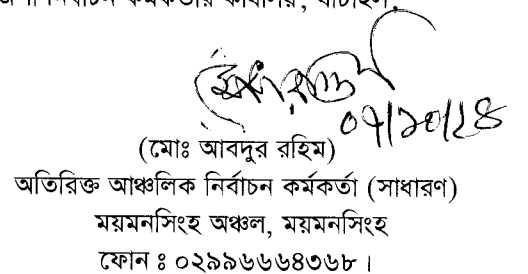 নির্বাচন কর্মকর্তার কার্যালয়,
০৭/১০/২৪
(মোঃ আবদুর রহিম)
অতিরিক্ত আঞ্চলিক নির্বাচন কর্মকর্তা (সাধারণ)
ময়মনসিংহ অঞ্চল, ময়মনসিংহ
ফোন ঃ ০২৯৯৬৬৬৪৩৬৮।